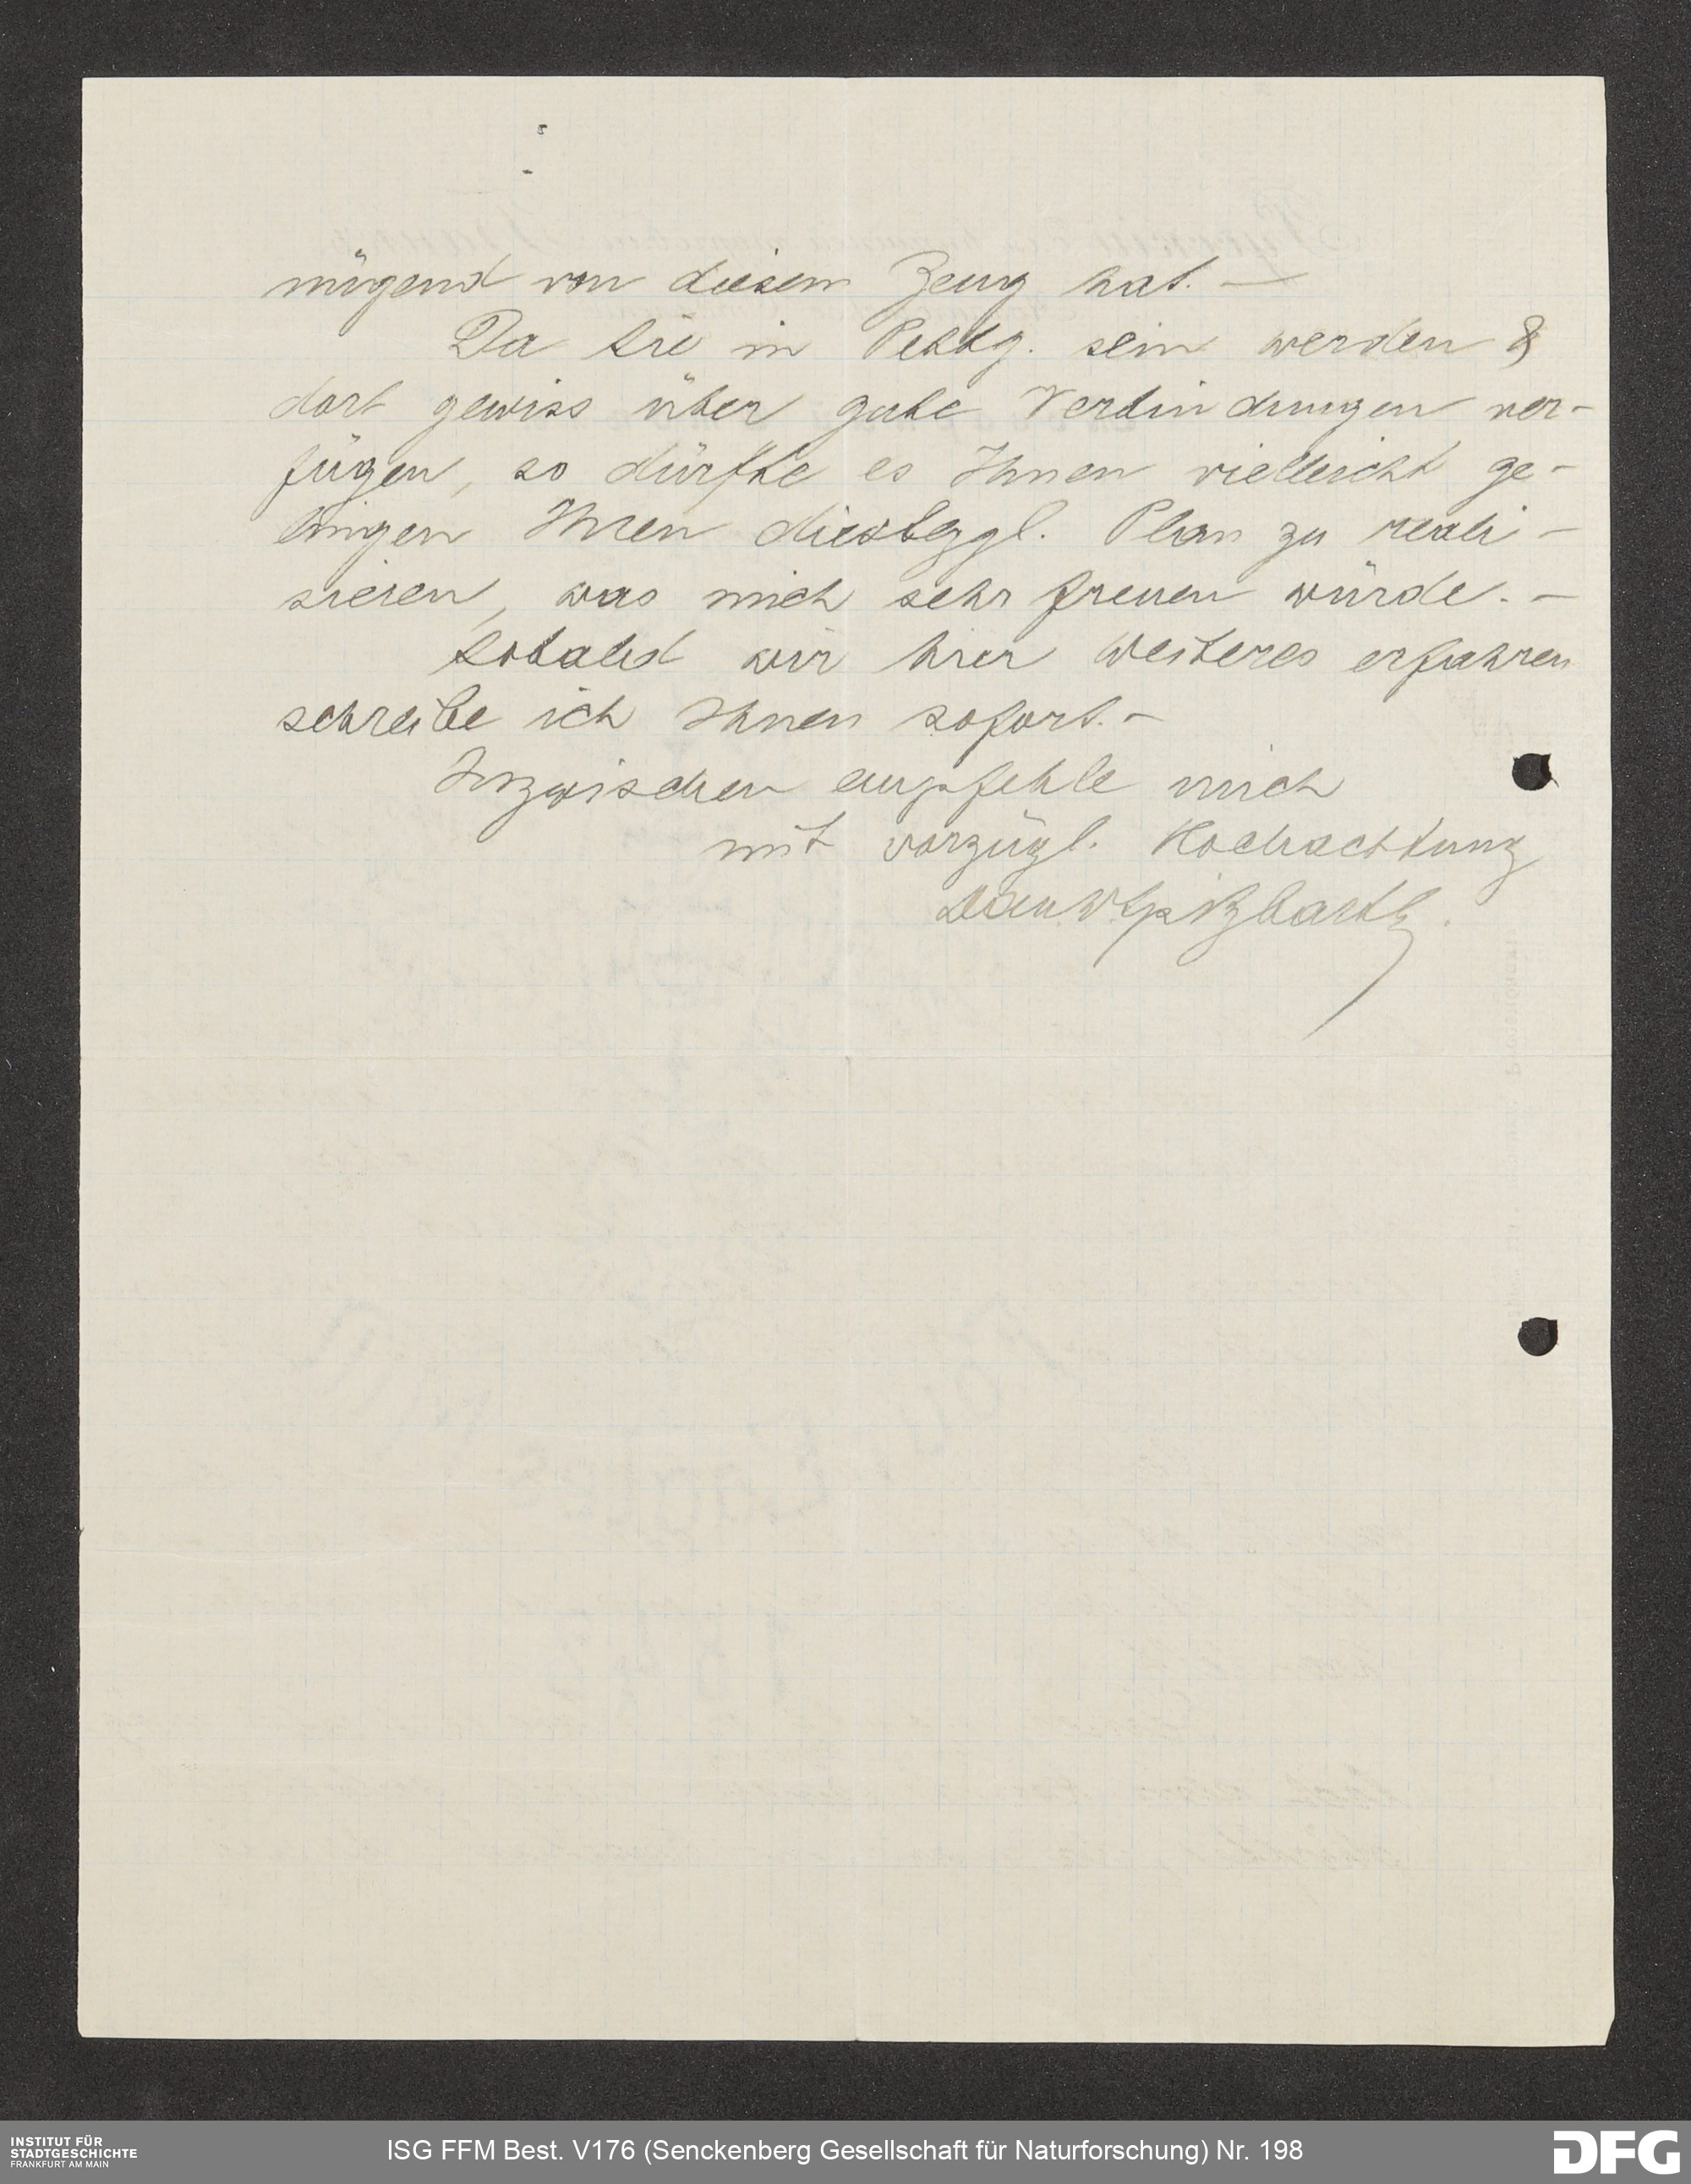 mögend von diesem Zeug hat. —
Da Sie in Petbg. sein werden &
dort gewiss über gute Verbindungen ver-
fügen, so dürfte es Ihnen vielleicht ge-
lingen Ihren diesbezgl. Plan zu reali-
sieren, was mich sehr freuen würde. —
Sobald wir hier Weiteres erfahren
schreibe ich Ihnen sofort. —
Inzwischen empfehle mich
mit vorzügl. Hochachtung
INSTITUT FÜR
STADTGESCHICHTE
FRANKFURT AM MAIN
ISG FFM Best. V176 (Senckenberg Gesellschaft für Naturforschung) Nr. 198
DFG